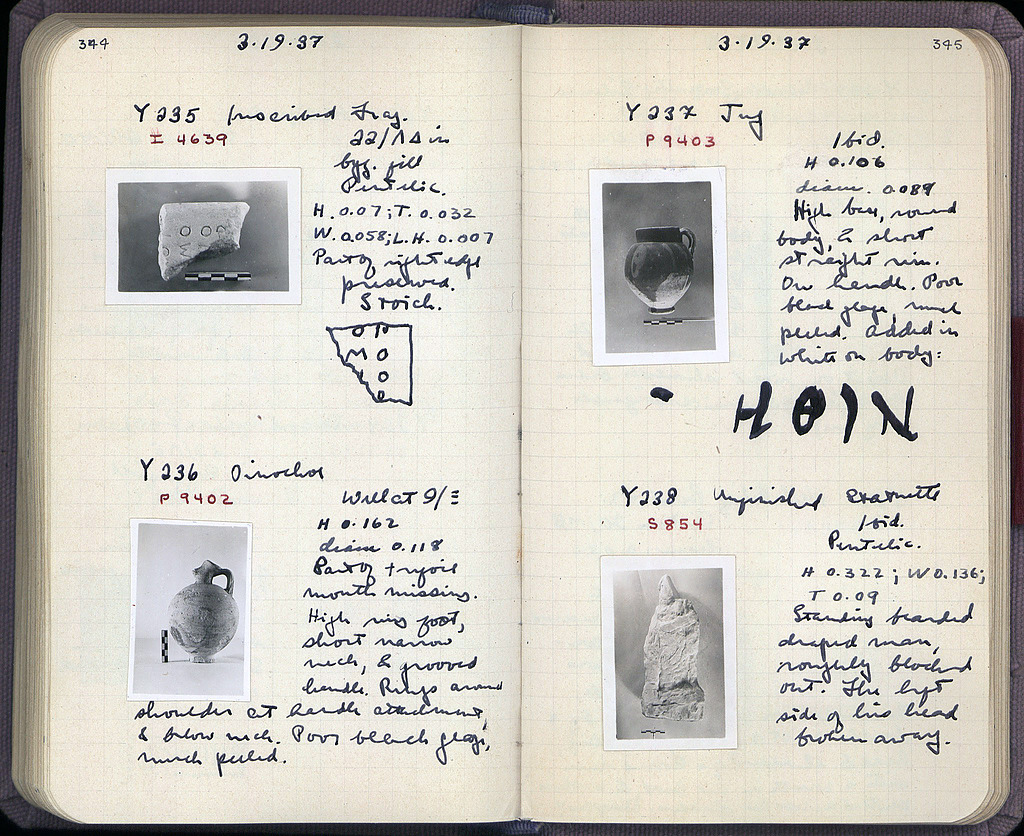 344
3·19·37
Y 235 Inscribed Frag.
I 4639
22/ΛΔ in
byz. fill
Pentelic.
H. 0.07; T. 0.032
W. 0.058; L.H. 0.007
Part of right edge
preserved.
Stoich.
Y 236 Oinochoe
P 9402
Well at 9/Ξ
H 0.162
diam 0.118
Part of trefoil
mouth missing.
High ring foot,
short narrow
neck, & grooved
handle. Rings around
shoulder at handle attachment,
& below neck. Poor black glaze,
much peeled.
345
3·19·37
Y 237 Jug
P 9403
Ibid.
H 0.106
diam. 0.089
High base, round
body, & short
straight rim.
One handle. Poor
black glaze, much
peeled. Added in
white on body:
ΗΘΙΝ
Y 238 Unfinished Statuette
S 854
Ibid.
Pentelic.
H 0.322; W 0.136;
T 0.09
Standing bearded
draped man,
roughly blocked
out. The left
side of his head
broken away.